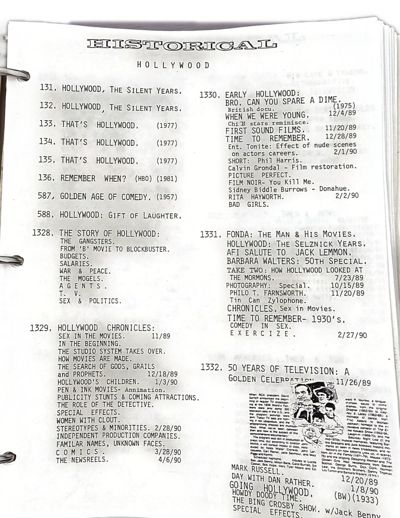 HISTORICAL
HOLLYWOOD
131. HOLLYWOOD, THE SILENT YEARS.
132. HOLLYWOOD, THE SILENT YEARS.
133. THAT'S HOLLYWOOD. (1977)
134. THAT'S HOLLYWOOD. (1977)
135. THAT'S HOLLYWOOD. (1977)
136. REMEMBER WHEN? (HBO) (1981)
587, GOLDEN AGE OF COMEDY. (1957)
588. HOLLYWOOD: GIFT OF LAUGHTER.
1328. THE STORY OF HOLLYWOOD:
THE GANGSTERS.
FROM 'B' MOVIE TO BLOCKBUSTER.
BUDGETS.
SALARIES.
WAR & PEACE.
THE MOGELS.
A G E N T S .
T. V.
SEX & POLITICS.
1329. HOLLYWOOD CHRONICLES:
SEX IN THE MOVIES. 11/89
IN THE BEGINNING.
THE STUDIO SYSTEM TAKES OVER.
HOW MOVIES ARE MADE.
THE SEARCH OF GODS, GRAILS
and PROPHETS. 12/18/89
HOLLYWOOD'S CHILDREN. 1/3/90
PEN & INK MOVIES- Annimation.
PUBLICITY STUNTS & COMING ATTRACTIONS.
THE ROLE OF THE DETECTIVE.
SPECIAL EFFECTS.
WOMEN WITH CLOUT.
STEREOTYPES & MINORITIES. 2/28/90
INDEPENDENT PRODUCTION COMPANIES.
FAMILAR NAMES, UNKNOWN FACES.
C O M I C S . 3/28/90
THE NEWSREELS. 4/6/90
1330. EARLY HOLLYWOOD:
BRO. CAN YOU SPARE A DIME.
British docu. (1975)
WHEN WE WERE YOUNG. 12/4/89
stars reminisce.
FIRST SOUND FILMS. 11/20/89
TIME TO REMEMBER. 12/28/89
Ent. Tonite: Effect of nude scenes
on actors careers. 2/1/90
SHORT: Phil Harris.
Calvin Grondal - Film restoration.
PICTURE PERFECT.
FILM NOIR- You Kill Me.
Sidney Biddle Burrows - Donahue.
RITA HAYWORTH. 2/2/90
BAD GIRLS.
1331. FONDA: THE MAN & HIS MOVIES.
HOLLYWOOD: THE SELZNICK YEARS.
AFI SALUTE TO JACK LEMMON.
BARBARA WALTERS: 50TH SPECIAL.
TAKE TWO: HOW HOLLYWOOD LOOKED AT
THE MORMONS. 7/23/89
PHOTOGRAPHY: Special. 10/15/89
PHILO T. FARNSWORTH. 11/20/89
Tin Can Zylophone.
CHRONICLES, Sex in Movies.
TIME TO REMEMBER- 1930's.
COMEDY IN SEX.
E X E R C I Z E . 2/27/90
1332. 50 YEARS OF TELEVISION: A
GOLDEN CELEBRATION 11/26/89
MARK RUSSELL.
DAY WITH DAN RATHER. 12/20/89
GOING HOLLYWOOD. 1/8/90
HOWDY DOODY TIME. (BW)(1933)
THE BING CROSBY SHOW. w/Jack Benny
SPECIAL EFFECTS.